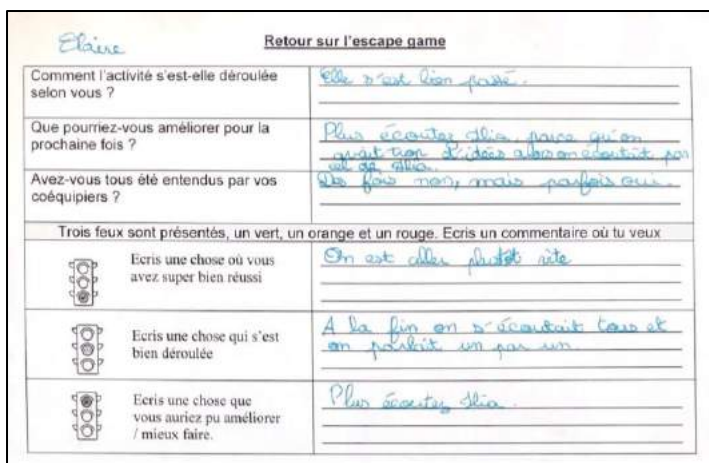 Elaire
Retour sur l'escape game
Comment l'activité s'est-elle déroulée
selon vous ?
Elle s'est bien passé.
Que pourriez-vous améliorer pour la
prochaine fois ?
Plus écoutez Ilia, parce qu'on
avait trop d'idées alors on écoutait pas
cel de Ilia.
Avez-vous tous été entendus par vos
coéquipiers ?
Des fois non, mais parfois oui.
Trois feux sont présentés, un vert, un orange et un rouge. Ecris un commentaire où tu veux
Ecris une chose où vous
avez super bien réussi
On est aller plutôt vite
Ecris une chose qui s'est
bien déroulée
A la fin on s'écoutait tous et
on parlait un par un.
Ecris une chose que
vous auriez pu améliorer
/ mieux faire.
Plus écoutez Ilia.